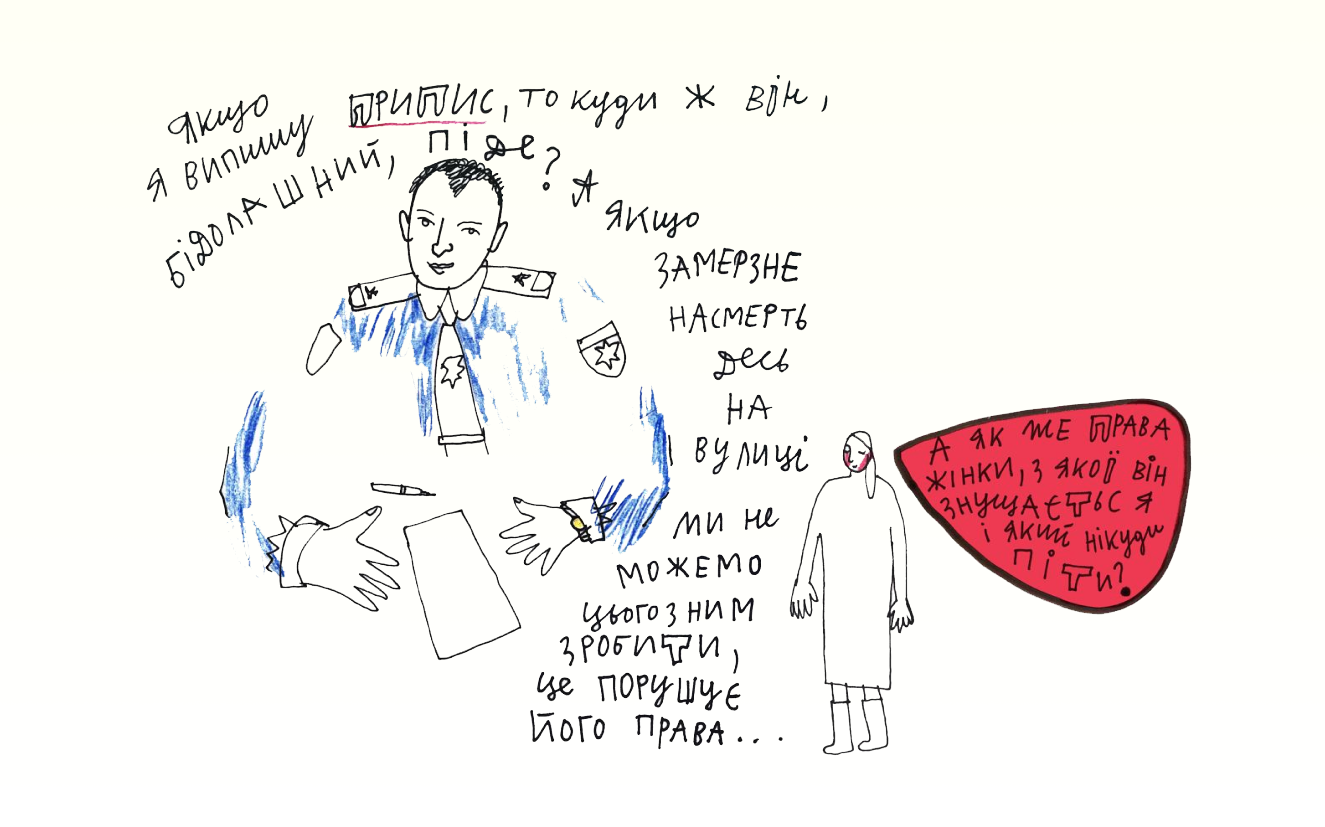 ЯКЩО
Я ВИПИШУ ПРИПИС, ТО КУДИ Ж ВІН,
БІДОЛАШНИЙ, ПІДЕ? А
ЯКЩО
ЗАМЕРЗНЕ
НАСМЕРТЬ
ДЕСЬ
НА
ВУЛИЦІ
МИ НЕ
МОЖЕМО
ЦЬОГО З НИМ
ЗРОБИТИ,
ЦЕ ПОРУШУЄ
ЙОГО ПРАВА...
А ЯК ЖЕ ПРАВА
ЖІНКИ, З ЯКОЇ ВІН
ЗНУЩАЄТЬСЯ
І ЯКИЙ НІКУДИ
ПІТИ?